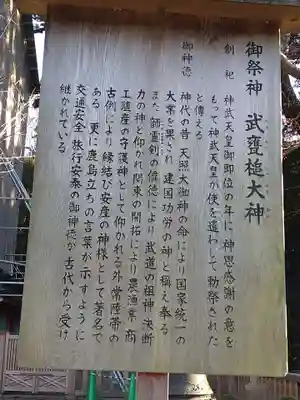 御祭神 武甕槌大神
創祀 神武天皇御即位の年に神恩感謝の意を
もって神武天皇が使を遣わして勅祭された
と傳える
御神徳 神代の昔 天照大御神の命により国家統一の
大業を果され 建国功労の神と稱え奉る
また 韴霊剣の偉徳により武道の祖神 決断
力の神と仰がれ関東の開拓により農漁業 商
工殖産の守護神として仰がれる外 常陸帯の
古例により縁結び安産の神様として著名で
ある 更に鹿島立ちの言葉が示すように
交通安全 旅行安泰の御神徳が古代から受け
継がれている